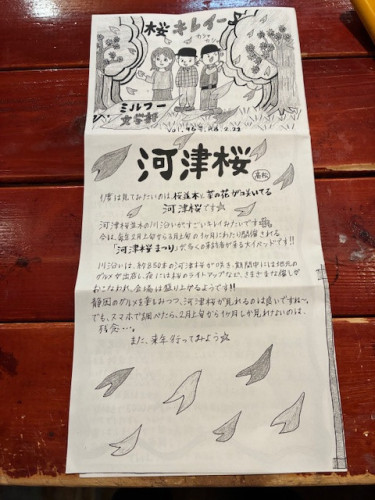 桜キレイー
ミルフー
文学科
河津桜
1度は見てみたいのは、桜並木と菜の花がさいてる
河津桜です☆
河津桜並木の川沿いがすごいキレイみたいです
今は、毎年2月上旬から3月上旬の1ヶ月にわたり開催される
「河津桜まつり」で多くの来訪者が来る大イベントです!!
川沿いは、約850本の河津桜がさき、期間中には地元の
グルメが出店し、夜には桜のライトアップなど、さまざまな催しが
おこなわれ、会場は盛り上がるようです!!
静岡のグルメを楽しみつつ、河津桜が見れるのは良いですね〜。
でも、スマホで調べたら、2月上旬から1ヶ月しか見れないのは、
残念…。
また、来年行ってみよう☆